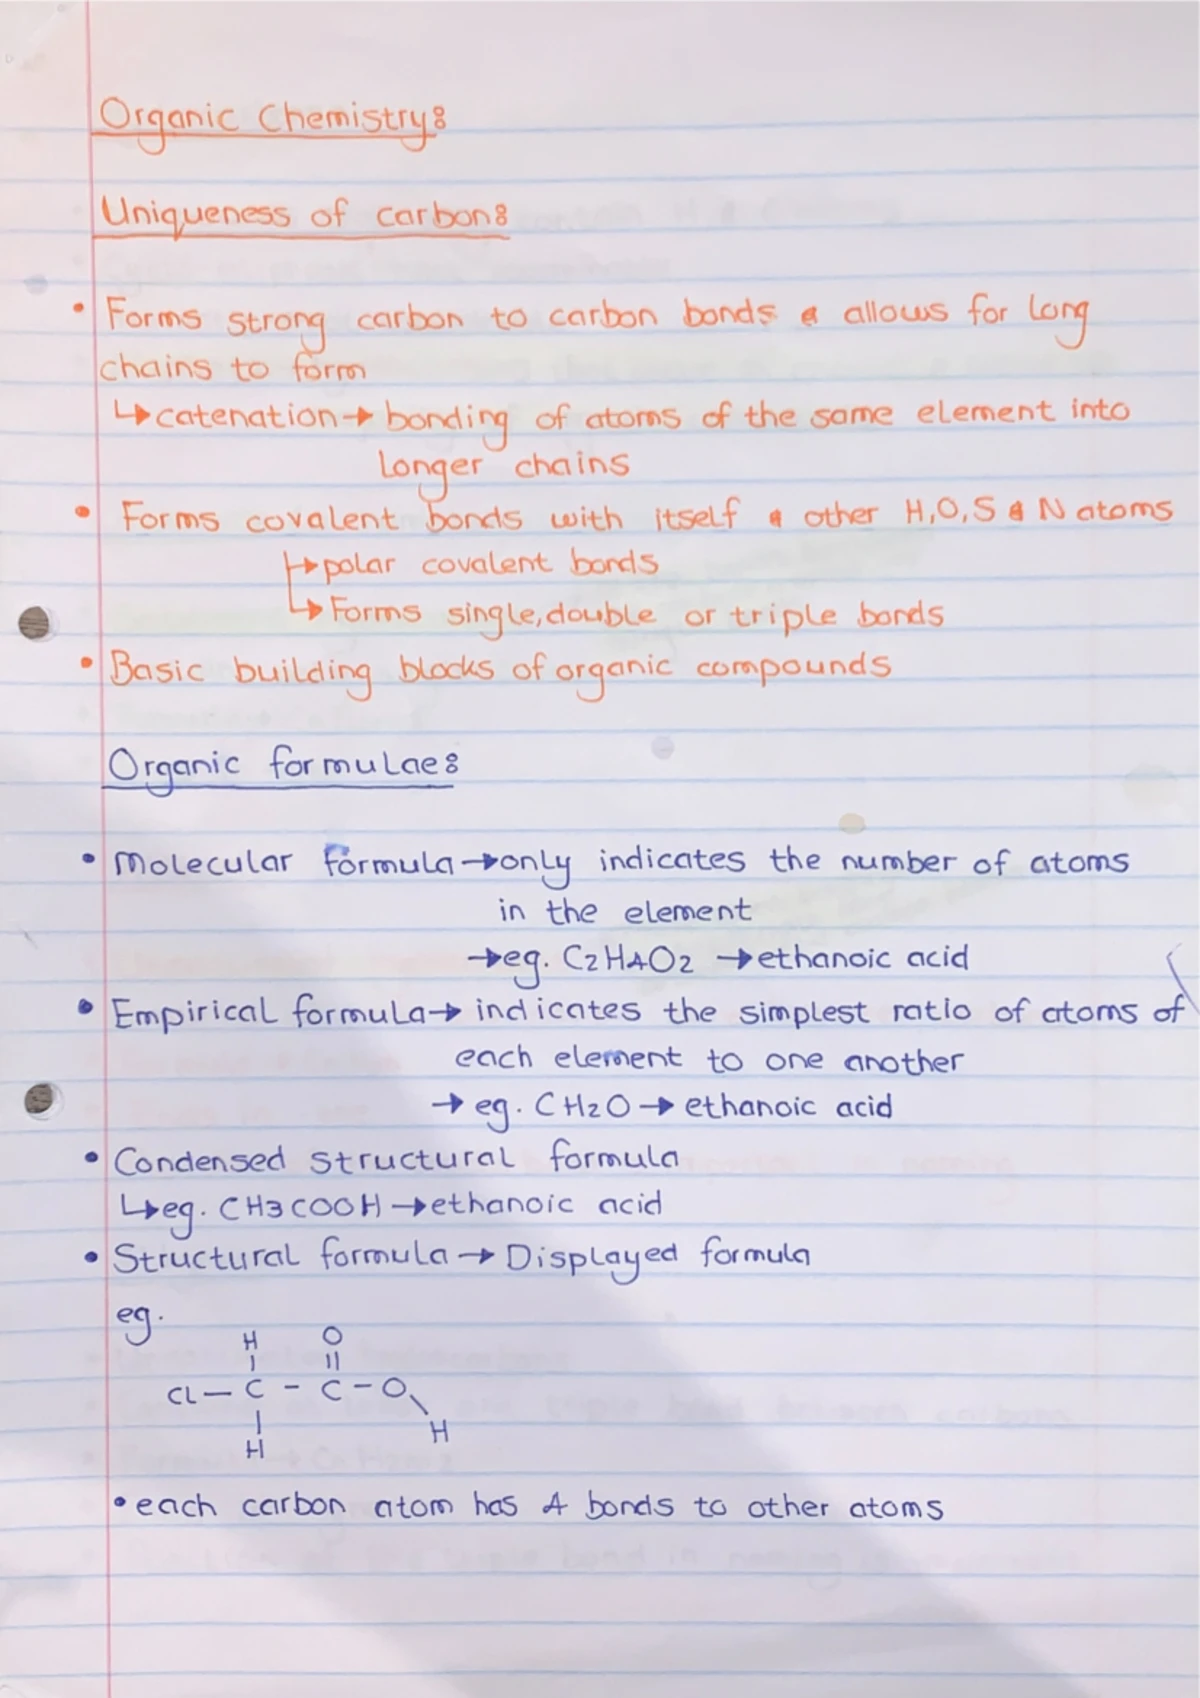 Organic Chemistry:
Uniqueness of carbon:
• Forms strong carbon to carbon bonds & allows for long
chains to form
↳ catenation → bonding of atoms of the same element into
longer chains
• Forms covalent bonds with itself & other H, O, S & N atoms
↳ polar covalent bonds
↳ Forms single, double or triple bonds
• Basic building blocks of organic compounds
Organic formulae:
• Molecular formula → only indicates the number of atoms
in the element
→ eg. C2H4O2 → ethanoic acid
• Empirical formula → indicates the simplest ratio of atoms of
each element to one another
→ eg. CH2O → ethanoic acid
• Condensed structural formula
↳ eg. CH3COOH → ethanoic acid
• Structural formula → Displayed formula
eg.
H O
Cl — C - C - O
H H
• each carbon atom has 4 bonds to other atoms